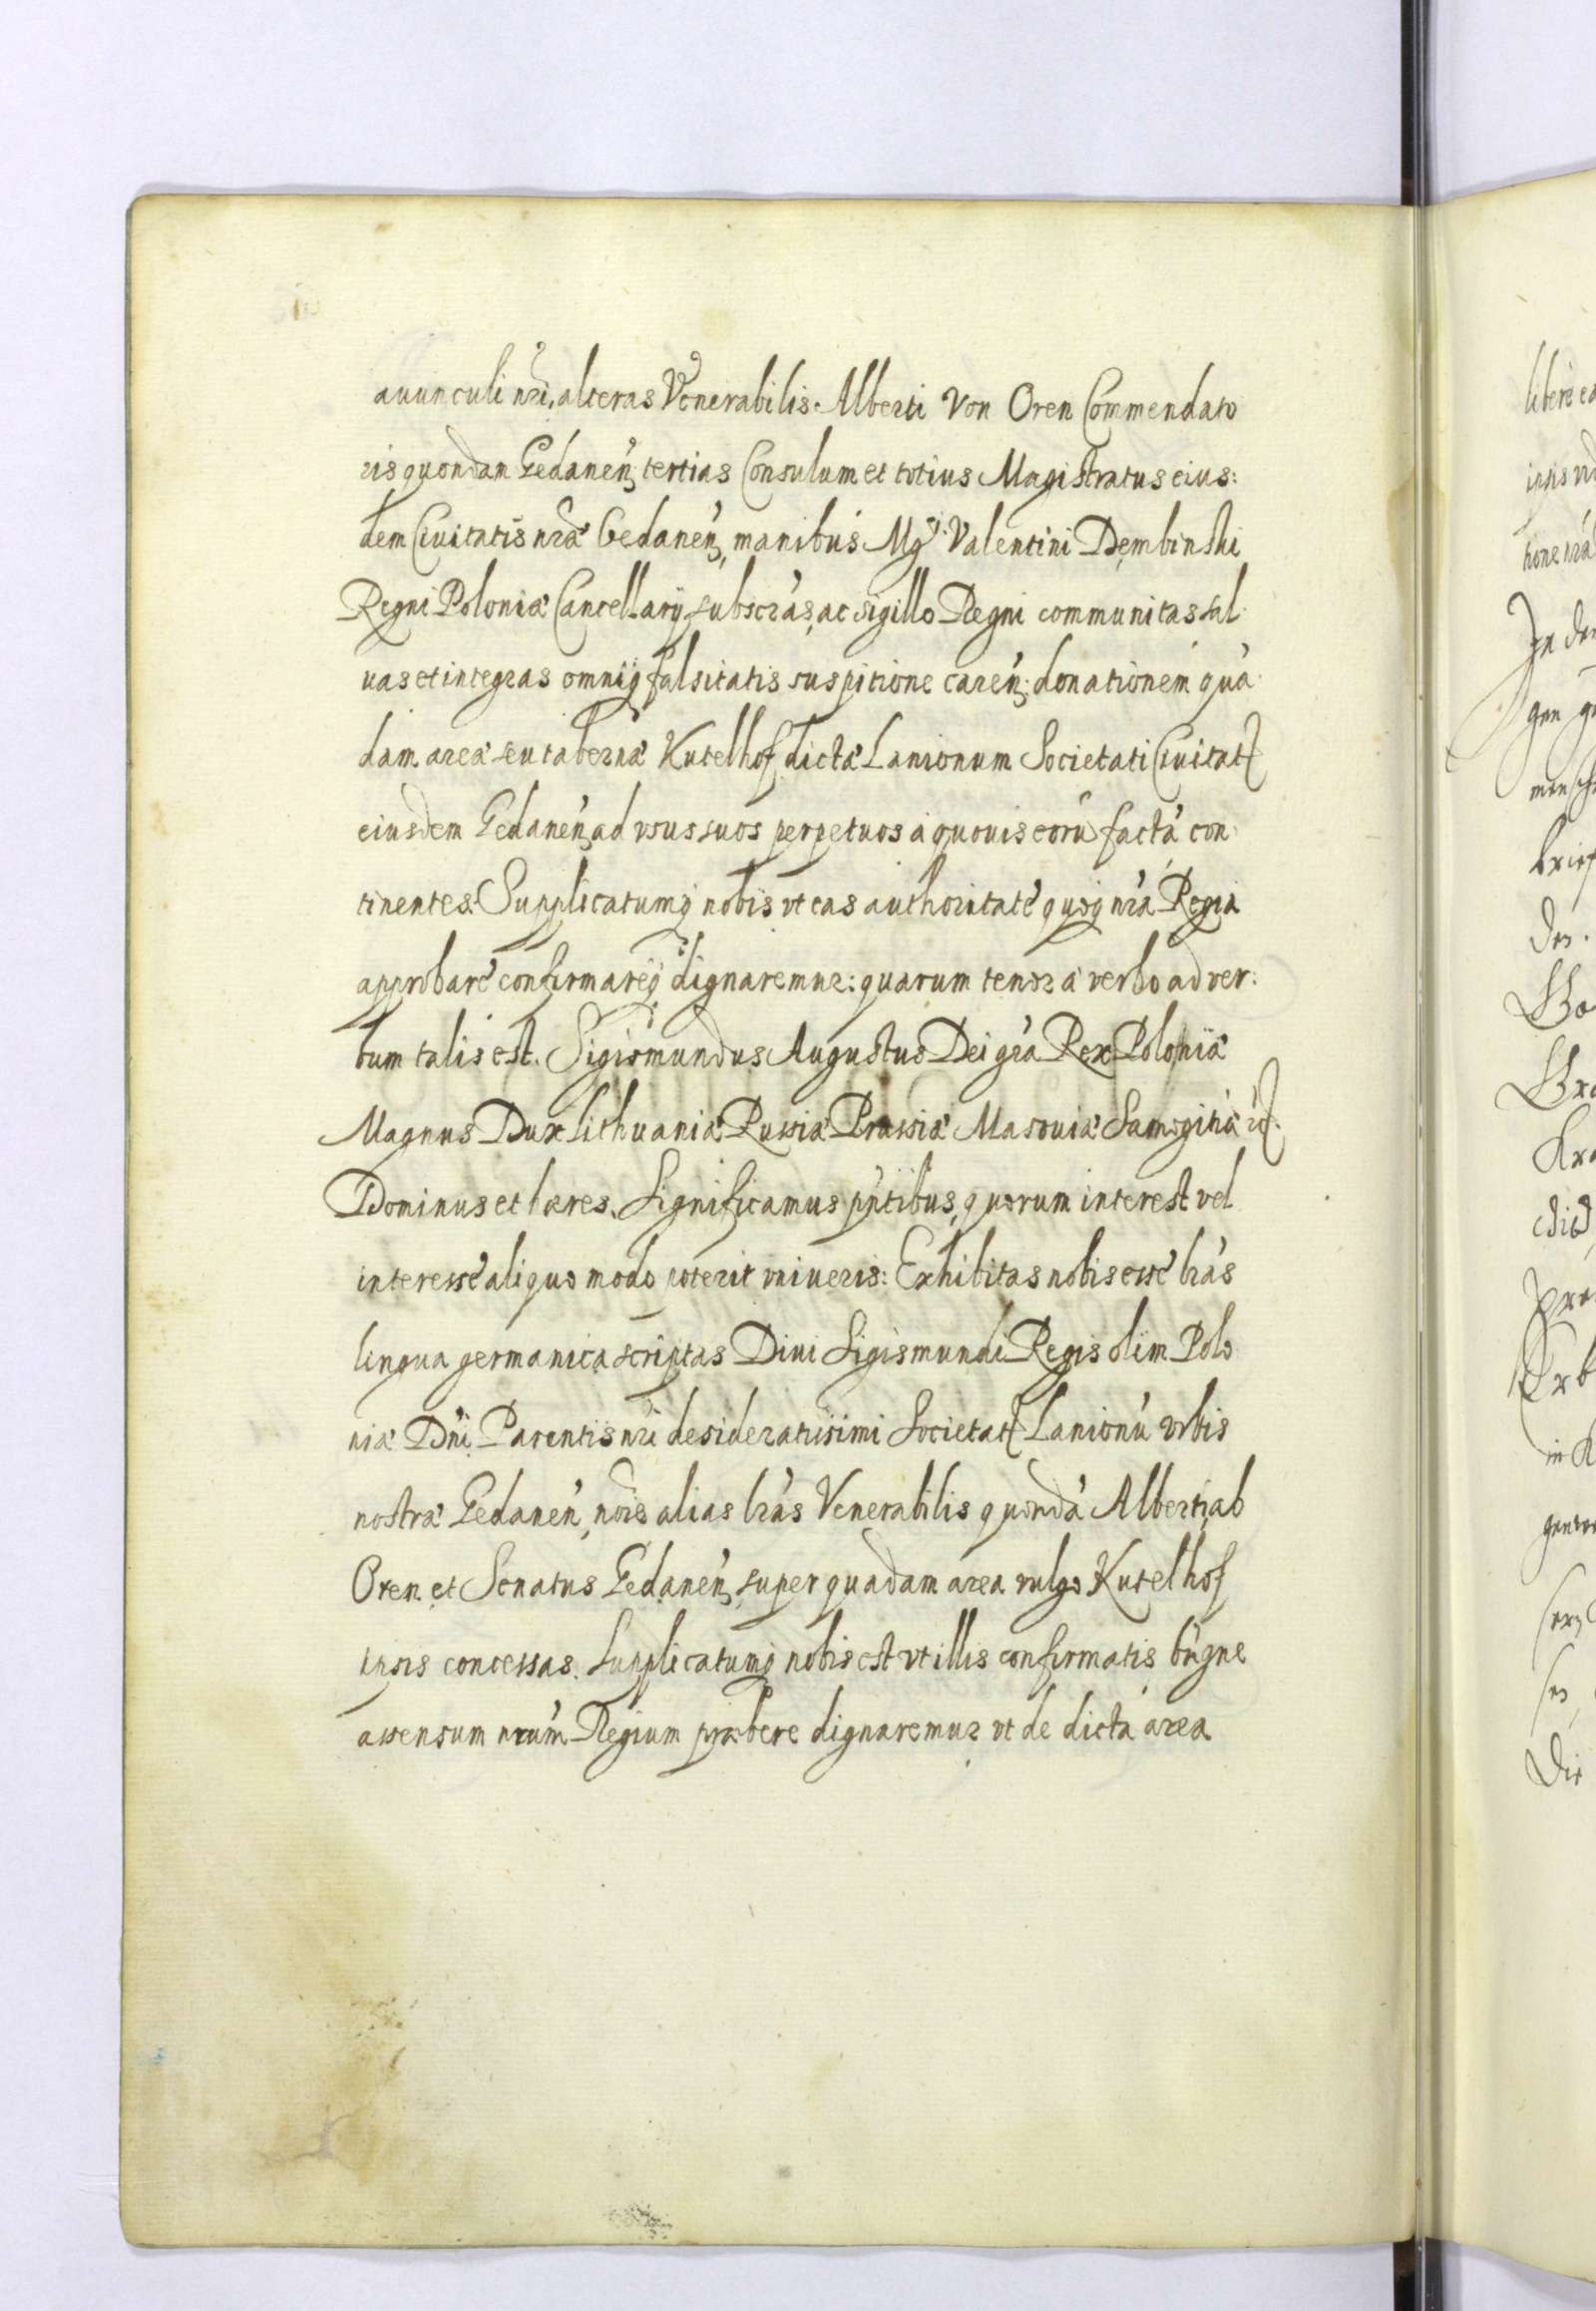 auunculi nrĩ, alteras Venerabilis Alberti Von Oren Commendato
ris quondam Gedaneñ, tertias Consulum et totius Magistratus eius:
dem Ciuitatis nræ Gedaneñ, manibus Mgci Valentini Dembinski
Regni Poloniæ Cancellarij subscràs, ac sigillo Regni communitas sal
uas et integras omniq falsitatis suspitione careñ: donationem quà
dam areæ seu tabernæ Kutelhof dictæ Lanionum Societati Ciuitat
eiusdem Gedaneñ ad vsus suos perpetuos à quouis eorũ factà con
tinentes. Supplicatumq nobis vt eas authoritate quoq nrà Regia
approbare confirmareq dignaremur: quarum tenor à verbo ad ver:
bum talis est. Sigismundus Augustus Dei grà Rex Poloniæ
Magnus Dux Lithuaniæ Russiæ Prussiæ Masouiæ Samogitiæ
Dominus et hæres. Significamus pñtibus, quorum interest vel
interesse aliquo modo poterit vniueris: Exhibitas nobis esse lràs
lingua germanica scriptas Diui Sigismundi Regis olim Polo
niæ Dñi Parentis nri desideratissimi Societat Lanionũ vrbis
nostræ Gedaneñ, alias lràs Venerabilis quondà Alberti ab
Oren et Senatus Gedaneñ, super quadam area vulgo Kutelhof
ipsis concessas. Supplicatumq nobis est vt illis confirmatis bñgne
assensum nrũm Regium præbere dignaremur vt de dicta area